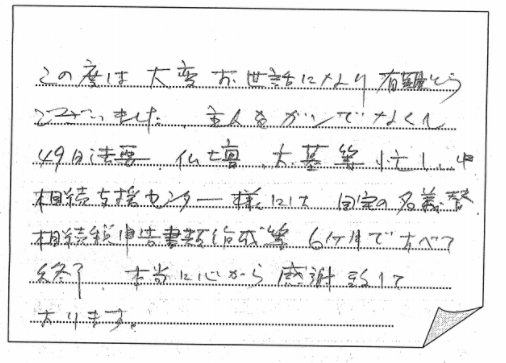 この度は大変お世話になり有難とう
ございました。主人をガンでなくし
49日法要、仏壇、お墓等忙しい中
相続支援センター様には自宅の名義替
相続税申告書類作成等6ケ月ですべて
終了、本当に心から感謝致して
おります。